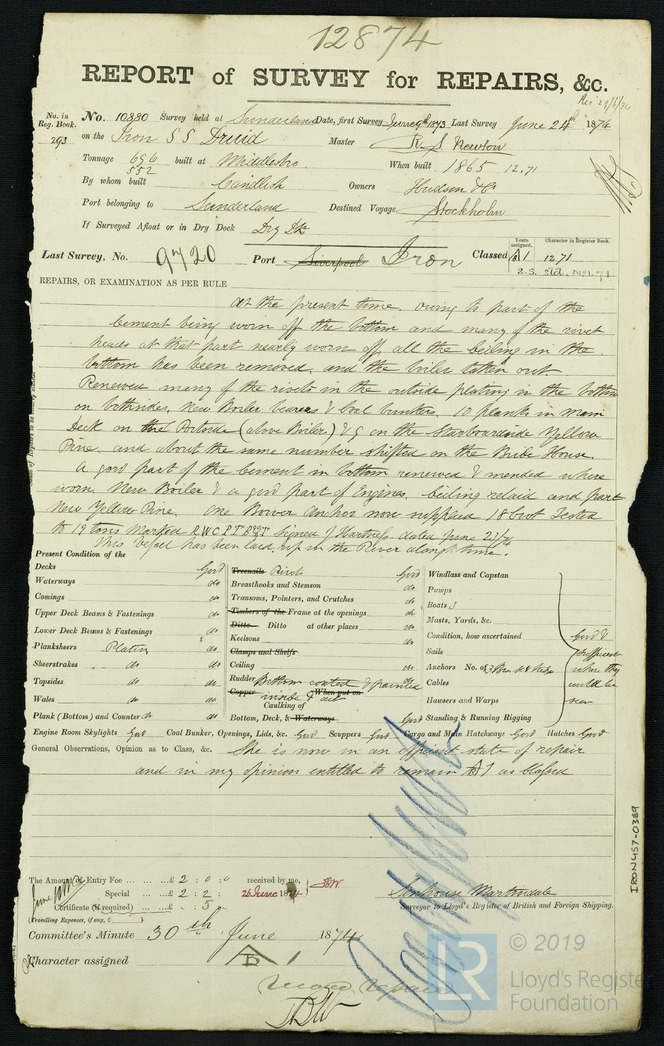 12874
REPORT of SURVEY for REPAIRS, &c.
No. in Reg. Book. No. 10880 Survey held at Sunderland Date, first Survey June 9th 1873 Last Survey June 24th 1874
293 on the Iron S S Druid Master R. S Newton
Tonnage 696 552 built at Middlesbro When built 1865 12.71
By whom built Candlish Owners Hudson & Co
Port belonging to Sunderland Destined Voyage Stockholm
If Surveyed Afloat or in Dry Dock Dry Dk
Years assigned. Character in Register Book.
Last Survey, No. 9720 Port Liverpool Iron Classed A1 12,71
REPAIRS, OR EXAMINATION AS PER RULE
At the present time. owing to part of the
cement being worn off the bottom and many of the rivet
heads at that part nearly worn off, all the ceiling in the
bottom has been removed, and the boiler taken out
Renewed many of the rivets in the outside plating in the bottom
on bothsides, New Boiler bearers & Coal bunkers, 10 planks in main
Deck on the Portside (above Boiler) & 9 on the Starboardside Yellow
Pine, and about the same number shifted on the Bridge House.
A good part of the cement in bottom renewed & mended where
worn New Boiler & a good part of Engines, ceiling relaid and part
New Yellow Pine. One Bower Anchor now supplied 18 Cwt Tested
to 19 tons Marked signed J Hartness dated June 23/74
This vessel has been laid up in the River along time.
Present Condition of the
Decks Good Treenails Rivets Good Windlass and Capstan
Waterways do Breasthooks and Stemson do Pumps
Comings do Transoms, Pointers, and Crutches do Boats 3
Upper Deck Beams & Fastenings do Timbers of the Frame at the openings do Masts, Yards, &c.
Lower Deck Beams & Fastenings do Ditto Ditto at other places do Condition, how ascertained Good &
Planksheers Plating do Keelsons do Sails sufficient
Sheerstrakes do do Clamps and Shelfs Anchors No. of where they
Topsides do do Ceiling do Cables could be
Wales do do Rudder do Hausers and Warps seen
Copper Bottom coated & painted inside & out When put on
Caulking of
Plank (Bottom) and Counter do do Bottom, Deck, & Waterways Good Standing & Running Rigging
Engine Room Skylights Good Coal Bunker, Openings, Lids, &c. Good Scuppers Good Cargo and Main Hatchways Good Hatches Good
General Observations, Opinion as to Class, &c. She is now in an efficient state of repair
and in my opinion entitled to remain A1 as Classed
The Amount of Entry Fee ... £ 2 : 0 : 0 received by me,
Special ... £ 2 : 2 : 26 June 1874
Certificate (if required) ... £ : 5 :
(Travelling Expenses, if any, £ )
Senhouse Martindale
Surveyor to Lloyd's Register of British and Foreign Shipping.
Committee's Minute 30th June 1874
Character assigned A 1
record repairs
IRON457-0389
© 2019
LR
Lloyd's Register
Foundation